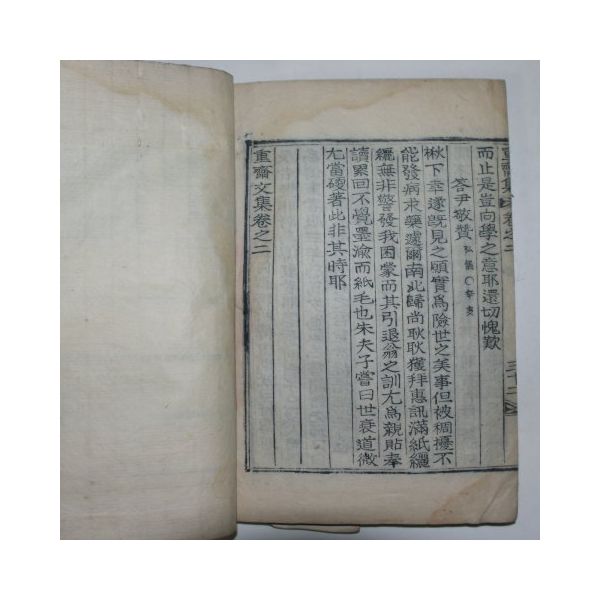 而止是豈向學之意耶還切愧歎
答尹敬贊
楸下幸遂旣見之願實爲險世之美事但被稠擾不
能發病求藥遽爾南北歸尚耿耿獲拜惠訊滿紙纚
纚無非警發我困蒙而其引退翁之訓尤爲親貼奉
讀累回不覺墨渝而紙毛也朱夫子嘗曰世衰道微
尤當硬著此非其時耶
重齋文集卷之二